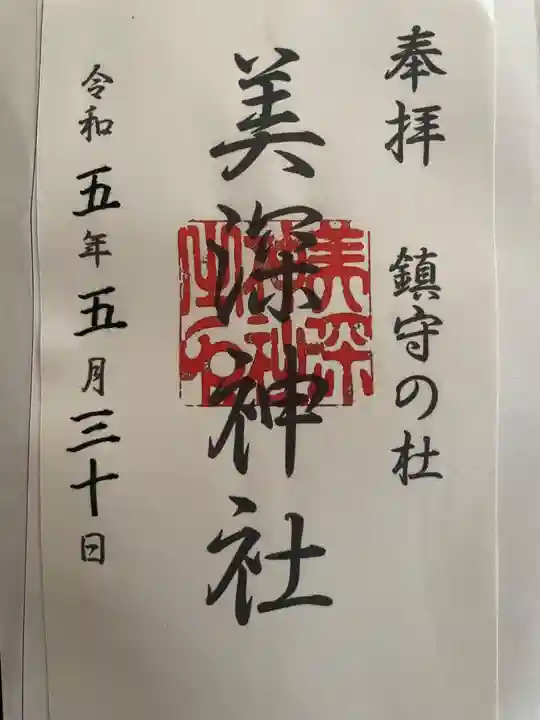 奉拝 鎮守の杜
美深神社
美深
神社
之印
令和五年五月三十日